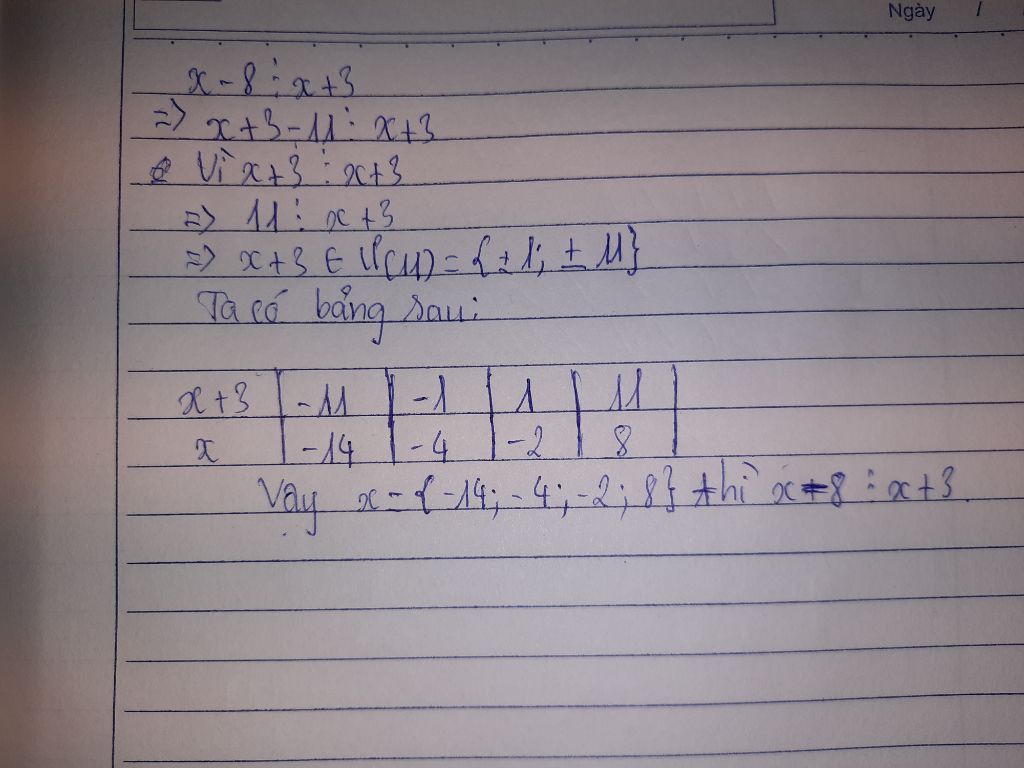 Ngày / /
x - 8 ⋮ x + 3
=> x + 3 - 11 ⋮ x + 3
Vì x + 3 ⋮ x + 3
=> 11 ⋮ x + 3
=> x + 3 ∈ Ư(11) = {±1; ± 11}
Ta có bảng sau:
x + 3 | -11 | -1 | 1 | 11 |
x | -14 | -4 | -2 | 8 |
Vậy x = {-14; -4; -2; 8} thì x - 8 ⋮ x + 3.